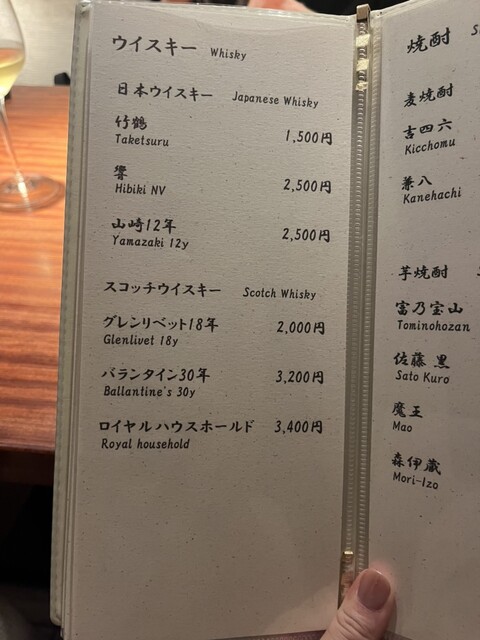 ウイスキー Whisky
日本ウイスキー Japanese Whisky
竹鶴 1,500円
Taketsuru
響 2,500円
Hibiki NV
山崎12年 2,500円
Yamazaki 12y
スコッチウイスキー Scotch Whisky
グレンリベット18年 2,000円
Glenlivet 18y
バランタイン30年 3,200円
Ballantine's 30y
ロイヤルハウスホールド 3,400円
Royal household
焼酎
麦焼酎
吉四六
Kicchomu
兼八
Kanehachi
芋焼酎
富乃宝山
Tominohozan
佐藤 黒
Sato Kuro
魔王
Mao
森伊蔵
Mori-Izo